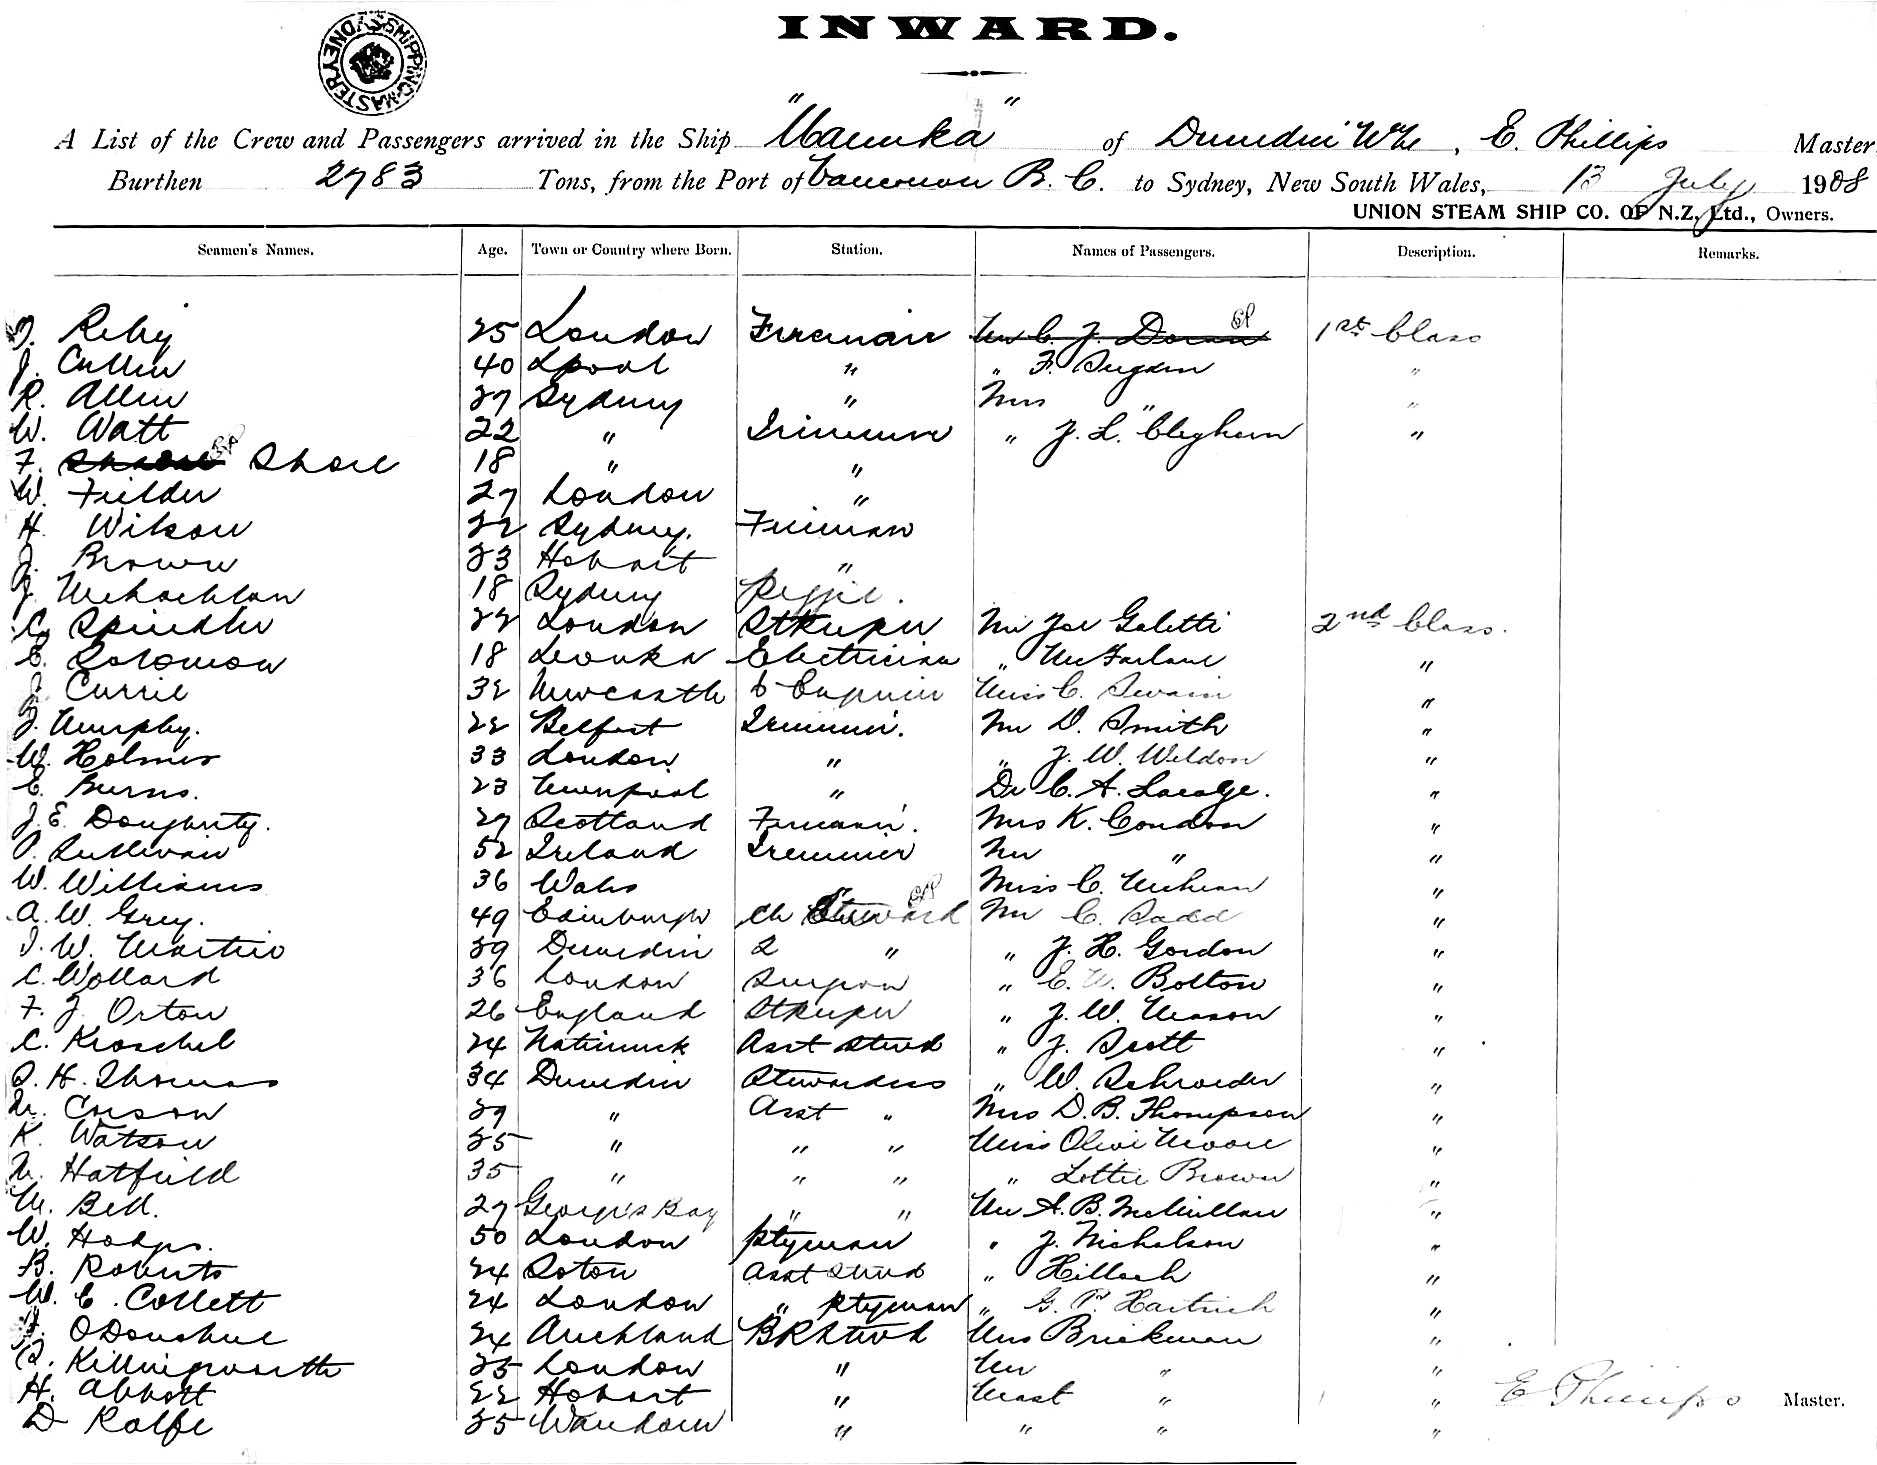 SHIPPING MASTER SYDNEY
INWARD.
A List of the Crew and Passengers arrived in the Ship "Manuka" of Dunedin E. Phillips Master
Burthen 2783 Tons, from the Port of Vancouver B. C. to Sydney, New South Wales, 13 July 1908
UNION STEAM SHIP CO. OF N.Z. Ltd., Owners.
Seamen's Names. Age. Town or Country where Born. Station. Names of Passengers. Description. Remarks.
Riley 25 London Fireman Mr C. J. Doran EP 1st Class
J. Cullin 40 Lpool " " F. Sugden "
R. Allen 27 Sydney " Mrs " "
W. Watt 22 " Trimmer " J. L. Cleghorn "
F. EP Shore 18 " "
W. Fielder 27 London "
H. Wilson 22 Sydney. Fireman
J. Brown 23 Hobart "
J. McLachlan 18 Sydney
C. Spindler 22 London Stkeeper Mr Galetti 2nd Class.
E. Solomon 18 Levuka Electrician " McFarlane "
J. Currie 32 Newcastle Miss C. Swain "
J. Murphy. 22 Belfast Trimmer. Mr D. Smith "
W. Holmes 33 London " " J. W. Weldon "
E. Burns. 23 Liverpool " Dr C. A. "
J. E. Dougherty. 27 Scotland Fireman. Mrs K. Condon "
Sullivan 52 Ireland Trimmer Mr " "
W. Williams 36 Wales " Miss C. "
A. W. Grey. 49 Edinburgh Ch Steward EP Mr C. "
W. Martin 39 Dunedin 2 " " J. H. Gordon "
C. Wollard 36 London Surgeon " E. W. Bolton "
F. J. Orton 26 England Stkeeper " J. W. "
C. Kroschel 24 Natimuk Asst Stwd " J. Scott "
S. H. Thomas 34 Dunedin Stewardess " W. Schroeder "
Corson 39 " Asst " Mrs D. B. Thompson "
K. Watson 35 " " " Miss Olive Moore "
Hatfield 35 " " " " Lottie Brown "
M. Bell. 27 George's Bay " " Mr A. B. McMillan "
W. Hodges. 50 London Ptyman " J. Nicholson "
B. Roberts 24 Soton Asst Stwd " "
W. C. Collett 24 London " Ptyman " G. P. "
ODonohue 24 Auckland BRStwd Mrs Brickman "
Killingworth 25 London " Mr " "
H. Abbott 22 Hobart " Mast " "
D Rolfe 25 " " " "
E Phillips Master.